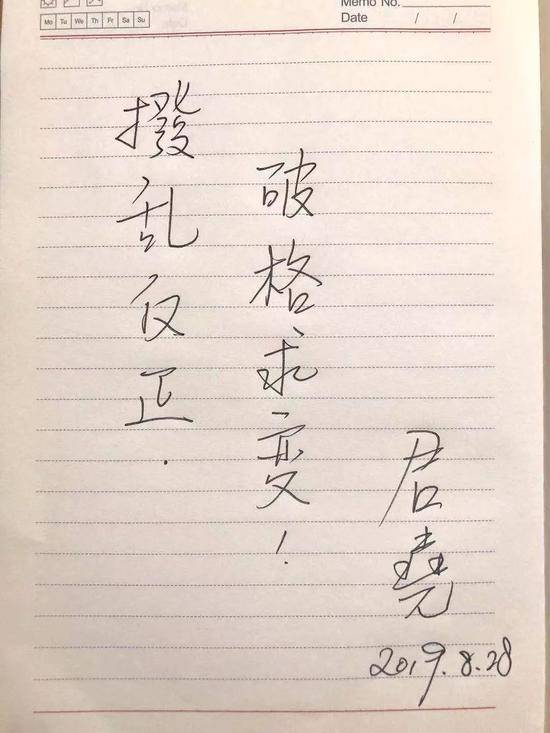 Memo No.
Mo Tu We Th Fr Sa Su
Date / /
撥乱反正.
破格求变!
君堯
2019.8.28